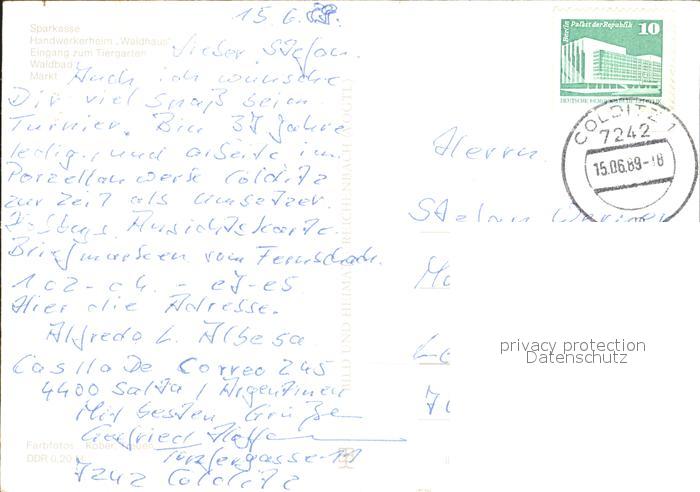 15.6.89.
Sparkasse
Handwerkerheim „Waldhaus"
Eingang zum Tiergarten
Waldbad
Markt
Lieber Stefan.
Auch ich wünsche
Dir viel Spaß beim
Turnier. Bin 37 Jahre
ledig, und arbeite im
Porzellanwerk Colditz
zur Zeit als Umsetzer.
Hobbys Ansichtskarte
Briefmarken vom Fernschach.
1 c2-c4 - e7-e5
Hier die Adresse.
Alfredo L. Albesa
Casilla De Correo 245
4400 Salta / Argentinien
Mit besten Grüße
7242 Colditz
Farbfotos
DDR 0,20 M
BILD UND HEIMAT REICHENBACH (VOGTL)
Berlin, Palast der Republik
10
COLDITZ 1
7242
15.06.89-18
Herrn
Stefan
privacy protection
Datenschutz